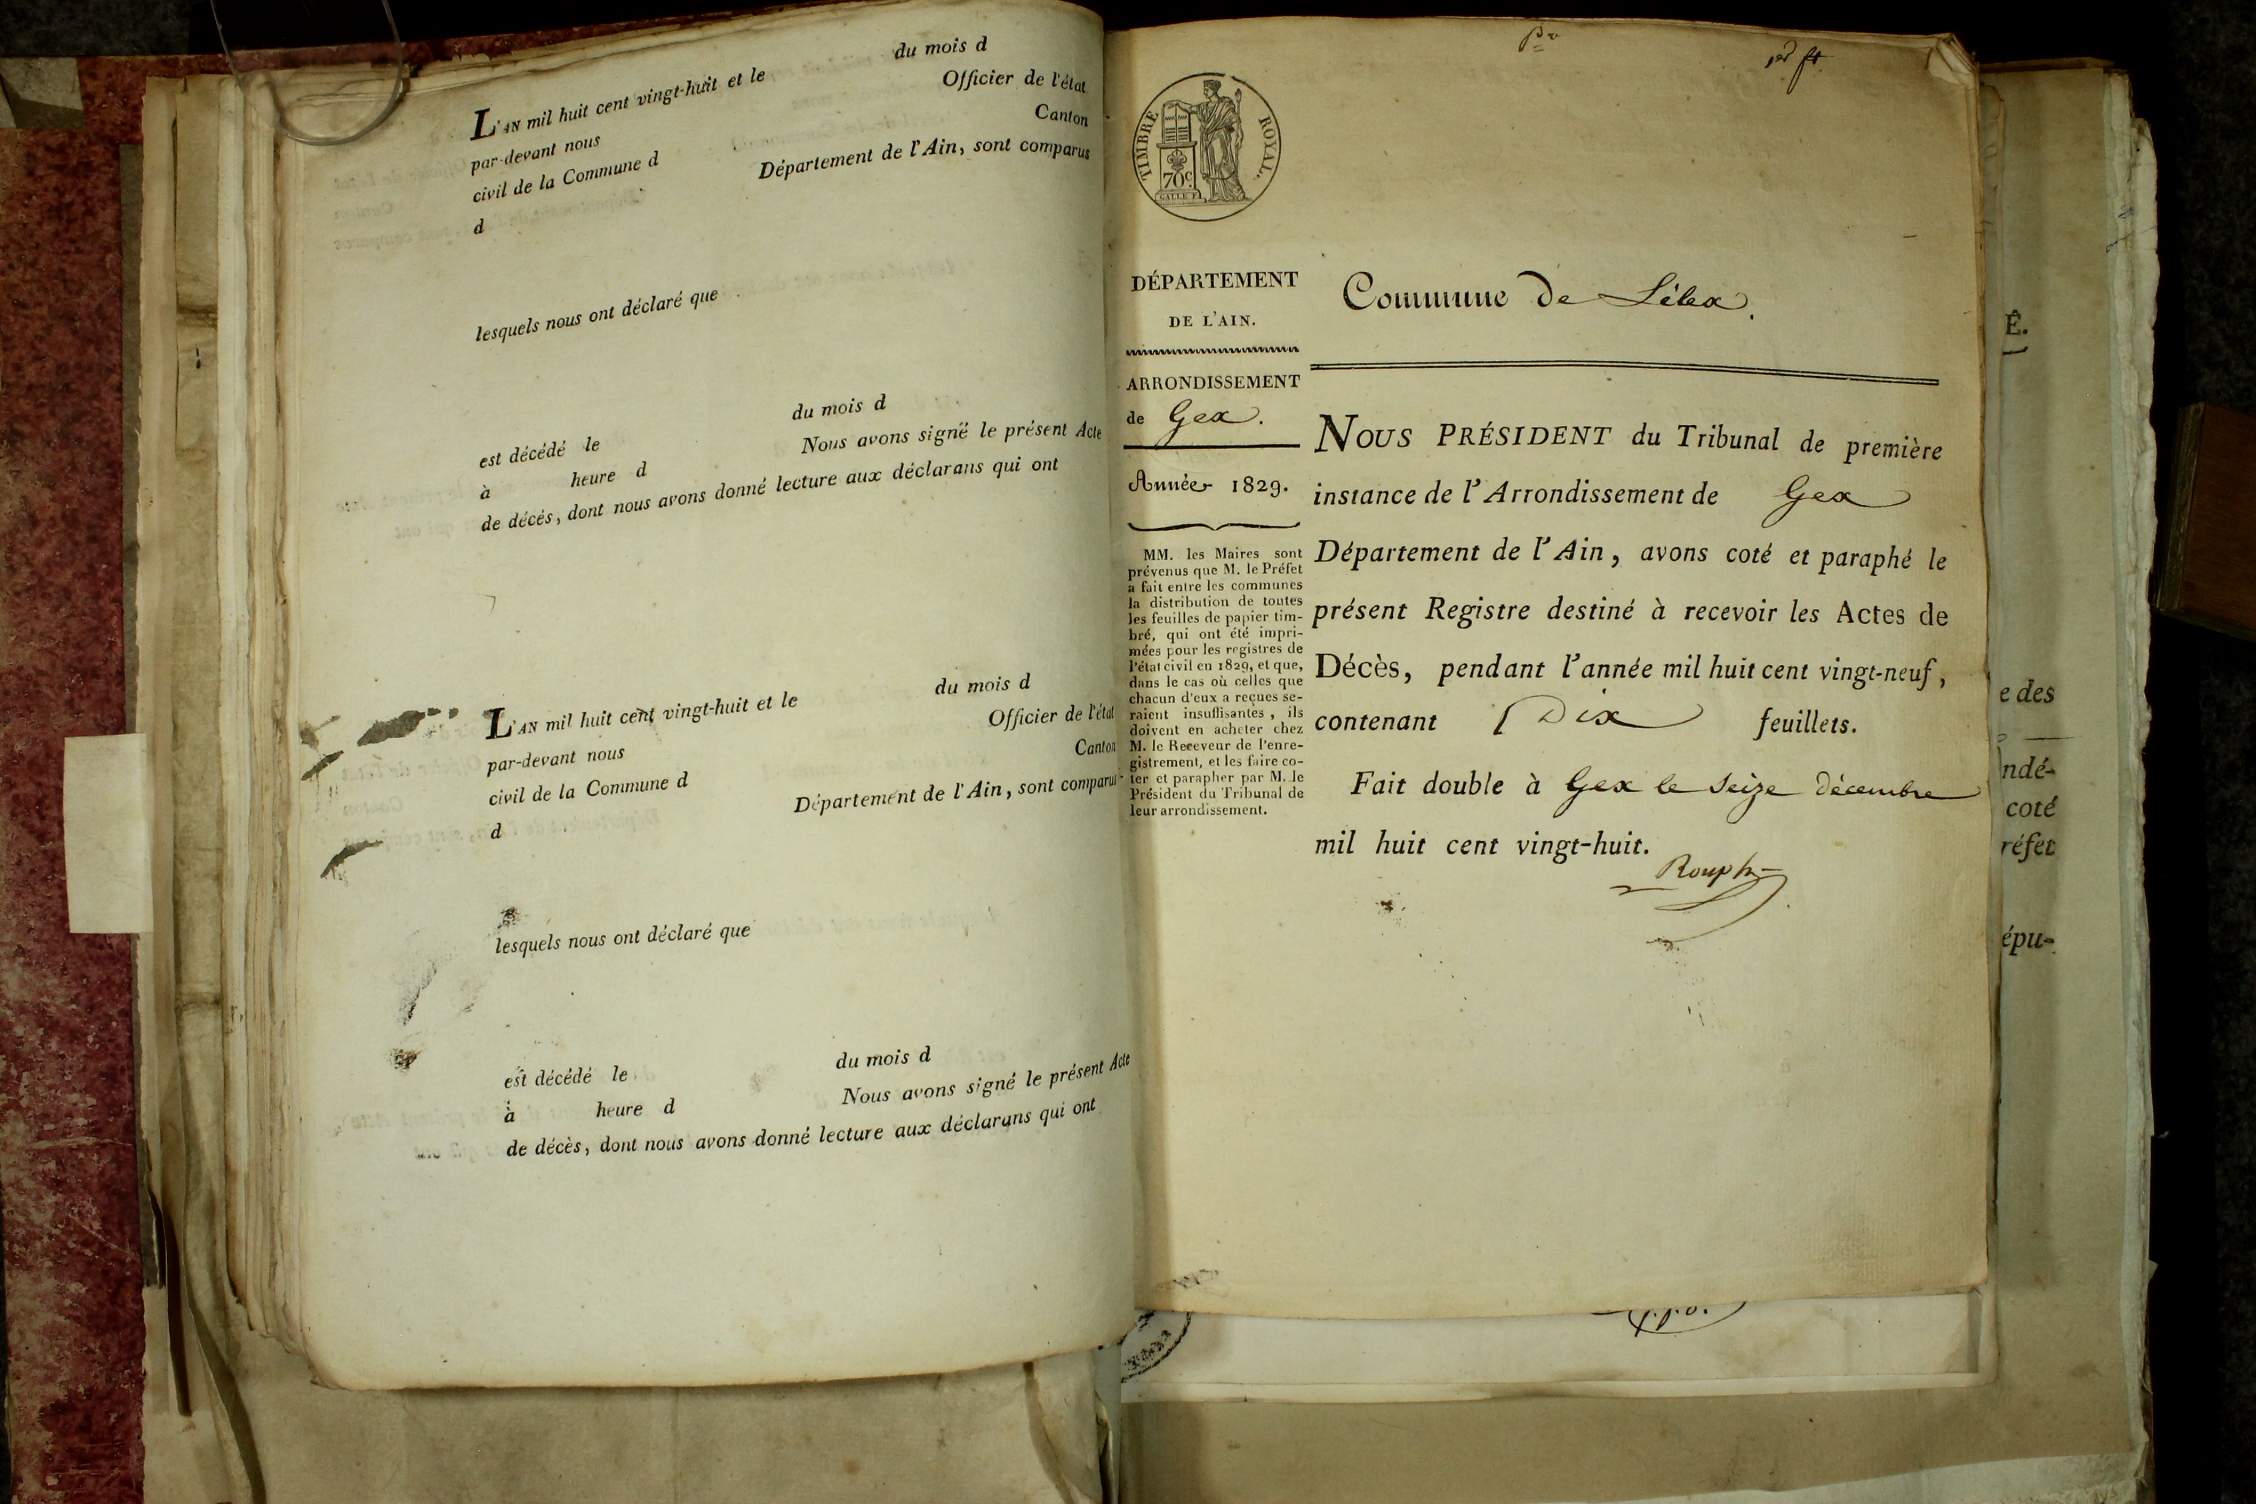 L'AN mil huit cent vingt-huit et le du mois d
par-devant nous Officier de l'état
civil de la Commune d Canton
d Département de l'Ain, sont comparus
lesquels nous ont déclaré que
est décédé le du mois d
à heure d Nous avons signé le présent Acte
de décès, dont nous avons donné lecture aux déclarans qui ont
L'AN mil huit cent vingt-huit et le du mois d
par-devant nous Officier de l'état
civil de la Commune d Canton
d Département de l'Ain, sont comparus
lesquels nous ont déclaré que
est décédé le du mois d
à heure d Nous avons signé le présent Acte
de décès, dont nous avons donné lecture aux déclarans qui ont
TIMBRE ROYAL.
70c.
GALLE F.
DÉPARTEMENT
DE L'AIN.
ARRONDISSEMENT
de Gex.
Année 1829.
MM. les Maires sont
prévenus que M. le Préfet
a fait entre les communes
la distribution de toutes
les feuilles de papier tim-
bré, qui ont été impri-
mées pour les registres de
l'état civil en 1829, et que,
dans le cas où celles que
chacun d'eux a reçues se-
raient insuffisantes, ils
doivent en acheter chez
M. le Receveur de l'enre-
gistrement, et les faire co-
ter et parapher par M. le
Président du Tribunal de
leur arrondissement.
Commune de Lélex.
NOUS PRÉSIDENT du Tribunal de première
instance de l'Arrondissement de Gex
Département de l'Ain, avons coté et paraphé le
présent Registre destiné à recevoir les Actes de
Décès, pendant l'année mil huit cent vingt-neuf,
contenant Dix feuillets.
Fait double à Gex le Seize décembre
mil huit cent vingt-huit.
Ê.
e des
ndé-
coté
réfet
épu-